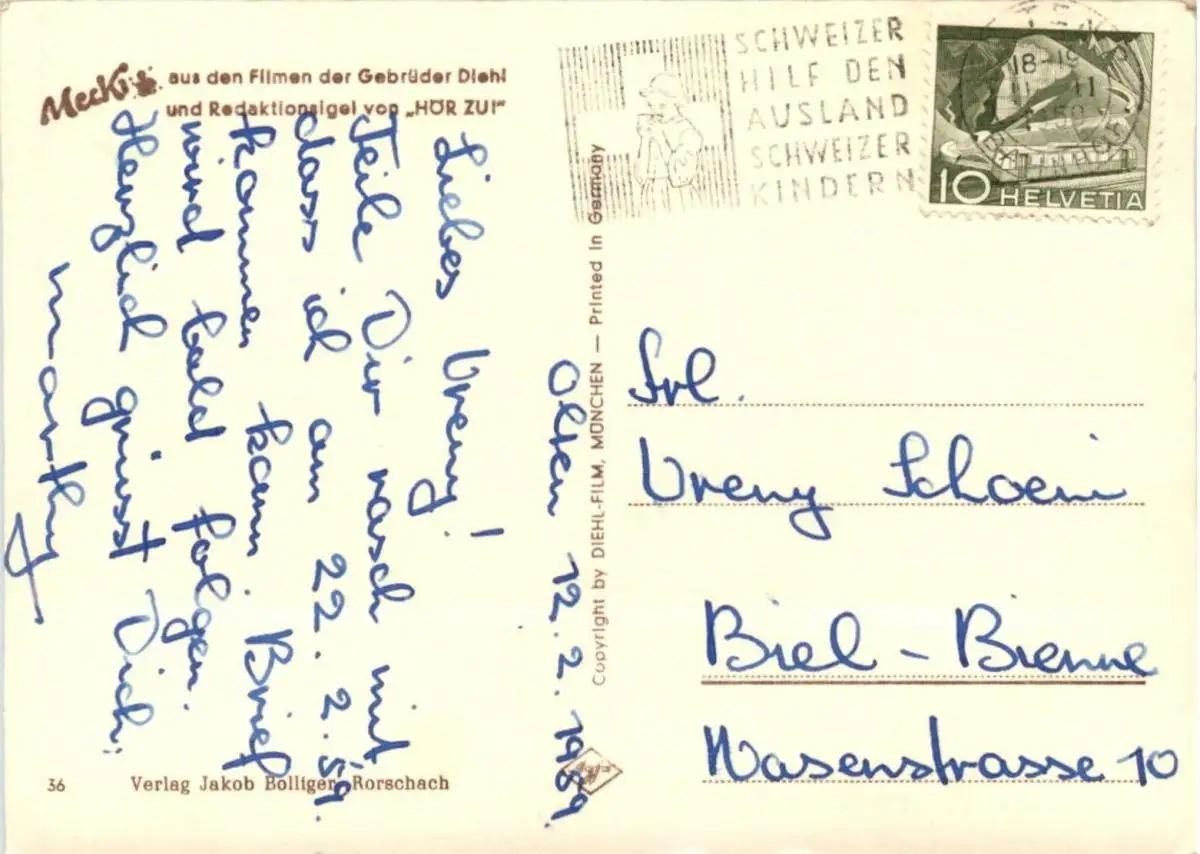 Mecki aus den Filmen der Gebrüder Diehl
und Redaktionsigel von „HÖR ZU!"
SCHWEIZER
HILF DEN
AUSLAND
SCHWEIZER
KINDERN
18-19
10 HELVETIA
Olten 12. 2. 1959.
Liebes Vreny!
Teile Dir rasch mit
dass ich am 22. 2. 59.
kommen kann. Brief
wird bald folgen.
Herzlich grüsst Dich:
Marthy
Copyright by DIEHL-FILM, MÜNCHEN — Printed in Germany
Frl.
Vreny Schoeni
Biel - Bienne
Wasenstrasse 10
36 Verlag Jakob Bolliger, Rorschach